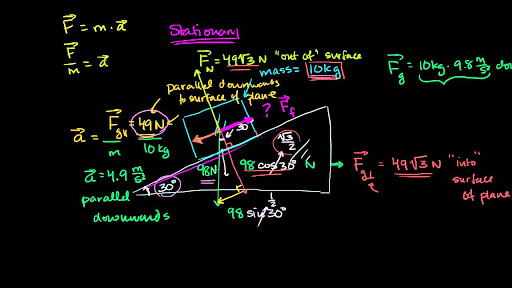 F = m · a
Stationary
F/m = a
F_N = 49√3 N "out of" surface
mass = 10kg
F_g = 10kg · 9.8 m/s²
parallel downwards
to surface of plane
? F_f
a = F_g|| / m = 49N / 10kg
30°
√3/2
98N
98 cos 30° N
F_g⊥ = 49√3 N "into"
surface
of plane
a = 4.9 m/s²
parallel
downwards
30°
1/2
98 sin 30°